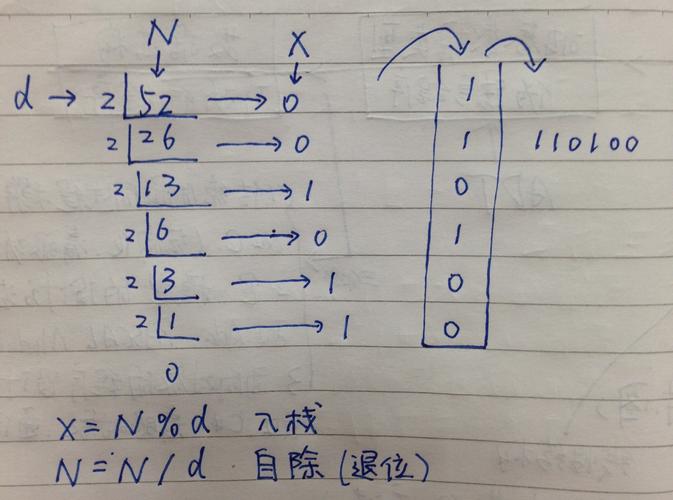 N X
d → 2 52 → 0 1
2 26 → 0 1 110100
2 13 → 1 0
2 6 → 0 1
2 3 → 1 0
2 1 → 1 0
0
X = N % d 入栈
N = N / d 自除(退位)